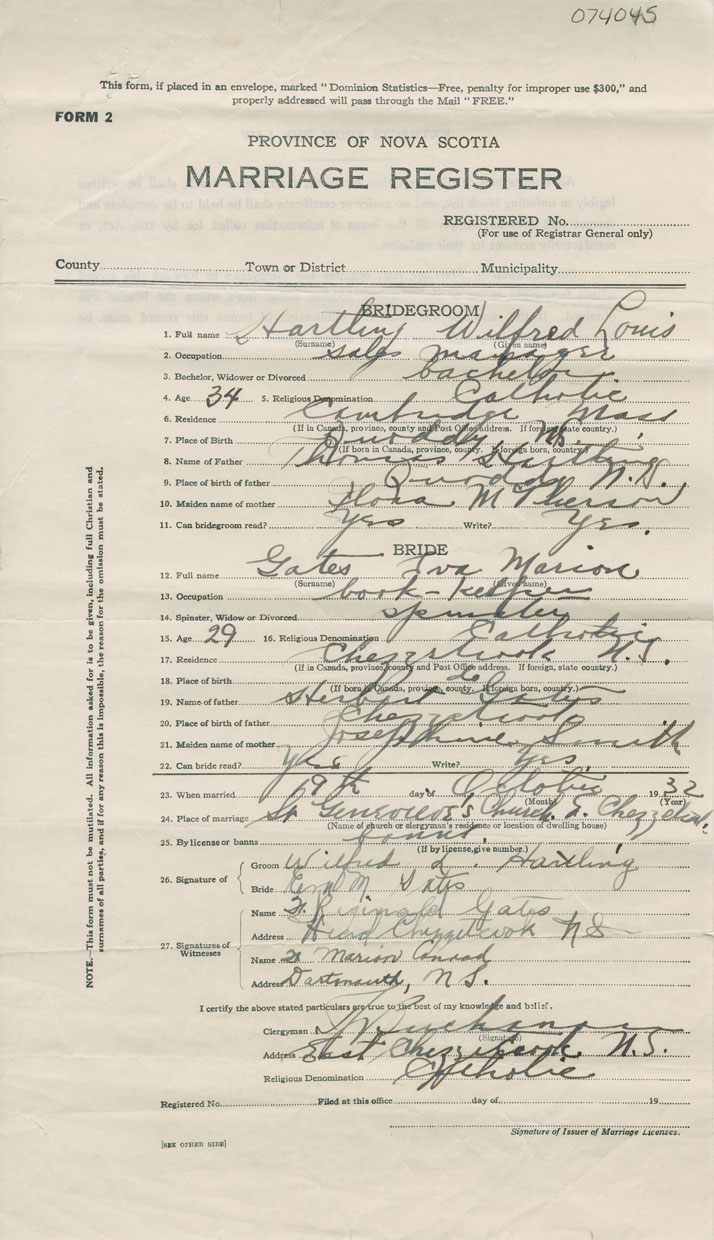 074045
This form, if placed in an envelope, marked "Dominion Statistics—Free, penalty for improper use $300," and
properly addressed will pass through the Mail "FREE."
FORM 2
PROVINCE OF NOVA SCOTIA
MARRIAGE REGISTER
REGISTERED No.
(For use of Registrar General only)
County Town or District Municipality
BRIDEGROOM
1. Full name Hartling Wilfred Louis
(Surname) (Given name)
2. Occupation sales manager
3. Bachelor, Widower or Divorced bachelor
4. Age 34 5. Religious Denomination Catholic
6. Residence Cambridge Mass
(If in Canada, province, county and Post Office address. If foreign, state country.)
7. Place of Birth Quoddy N.S.
(If born in Canada, province, county. If foreign born, country.)
8. Name of Father Thomas Hartling
9. Place of birth of father Quoddy N.S.
10. Maiden name of mother Flora McPherson
11. Can bridegroom read? Yes Write? Yes.
BRIDE
12. Full name Gates Eva Marion
(Surname) (Given name)
13. Occupation book-keeper
14. Spinster, Widow or Divorced spinster
15. Age 29 16. Religious Denomination Catholic
17. Residence Chezzetcook N.S.
(If in Canada, province, county and Post Office address. If foreign, state country.)
18. Place of birth do
(If born in Canada, province, county. If foreign born, country.)
19. Name of father Herbert Gates
20. Place of birth of father Chezzetcook
21. Maiden name of mother Josephine Smith
22. Can bride read? Yes Write? Yes.
23. When married 19th day of October 1932
(Month) (Year)
24. Place of marriage St Genevieve's Church, E. Chezzetcook
(Name of church or clergyman's residence or location of dwelling house)
25. By license or banns banns.
(If by license, give number.)
26. Signature of
Groom Wilfred L. Hartling
Bride Eva M Gates
27. Signatures of Witnesses
Name Reginald Gates
Address Head Chezzetcook NS
Name Marion Conrad
Address Dartmouth, N.S.
I certify the above stated particulars are true to the best of my knowledge and belief.
Clergyman
(Signature)
Address East Chezzetcook N.S.
Religious Denomination Catholic
Registered No. Filed at this office day of 19
Signature of Issuer of Marriage Licenses.
[SEE OTHER SIDE]
NOTE.—This form must not be mutilated. All information asked for is to be given, including full Christian and
surnames of all parties, and if for any reason this is impossible, the reason for the omission must be stated.